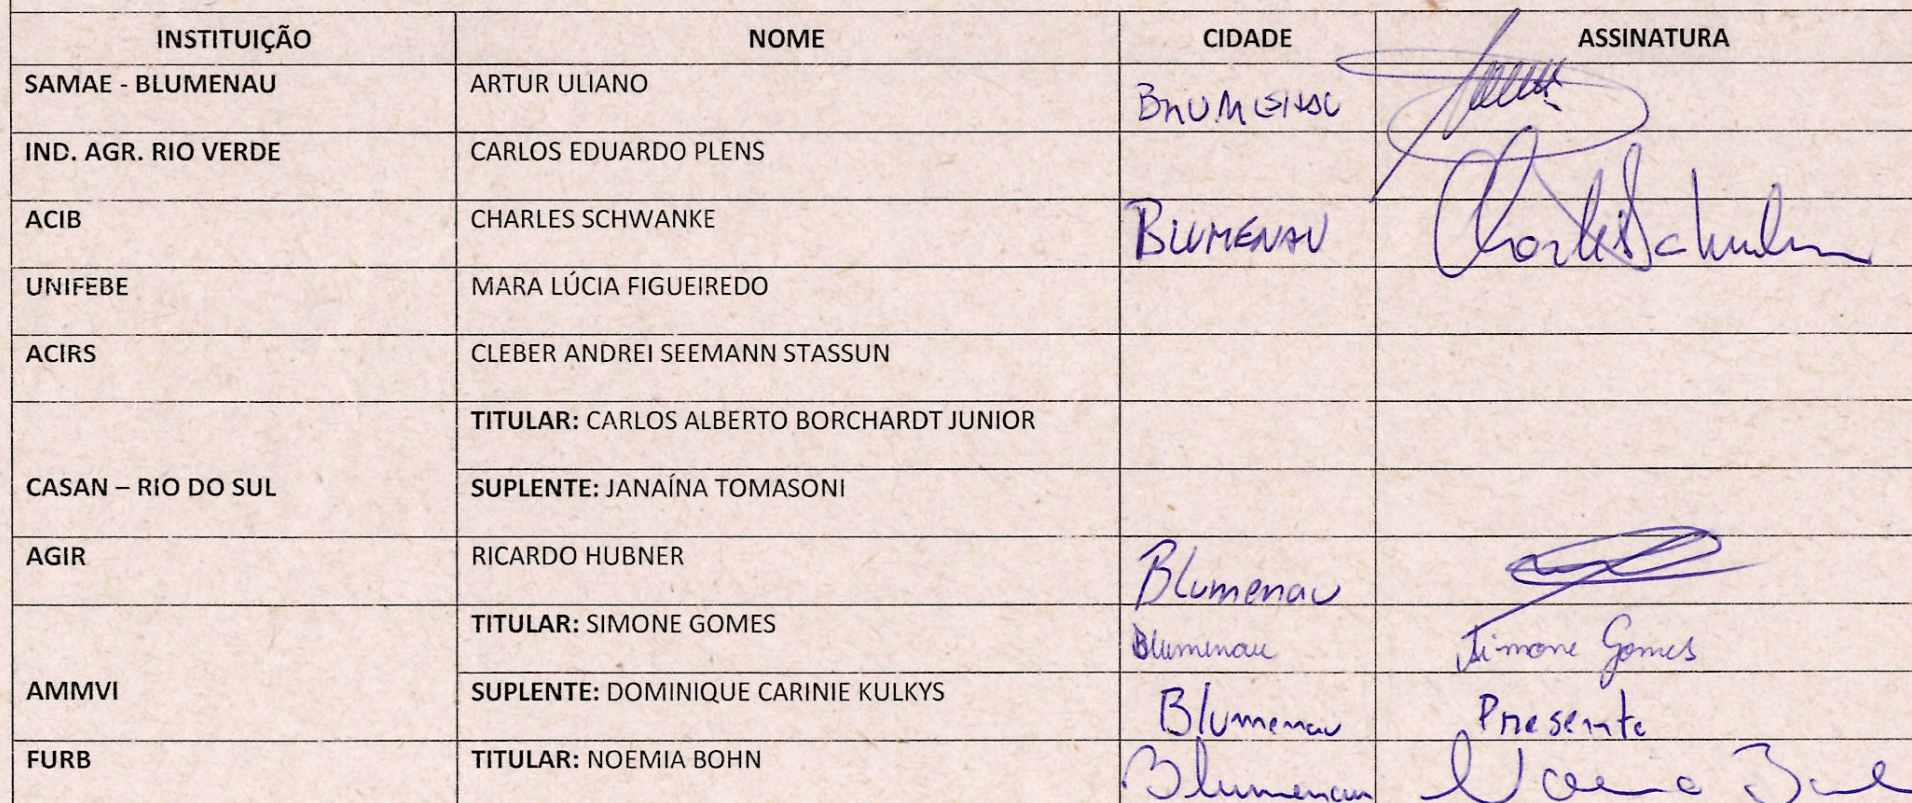 INSTITUIÇÃO NOME CIDADE ASSINATURA
SAMAE - BLUMENAU ARTUR ULIANO BLUMENAU
IND. AGR. RIO VERDE CARLOS EDUARDO PLENS
ACIB CHARLES SCHWANKE BLUMENAU Charles Schwanke
UNIFEBE MARA LÚCIA FIGUEIREDO
ACIRS CLEBER ANDREI SEEMANN STASSUN
TITULAR: CARLOS ALBERTO BORCHARDT JUNIOR
CASAN – RIO DO SUL SUPLENTE: JANAÍNA TOMASONI
AGIR RICARDO HUBNER Blumenau
TITULAR: SIMONE GOMES Blumenau Simone Gomes
AMMVI SUPLENTE: DOMINIQUE CARINIE KULKYS Blumenau Presente
FURB TITULAR: NOEMIA BOHN Blumenau